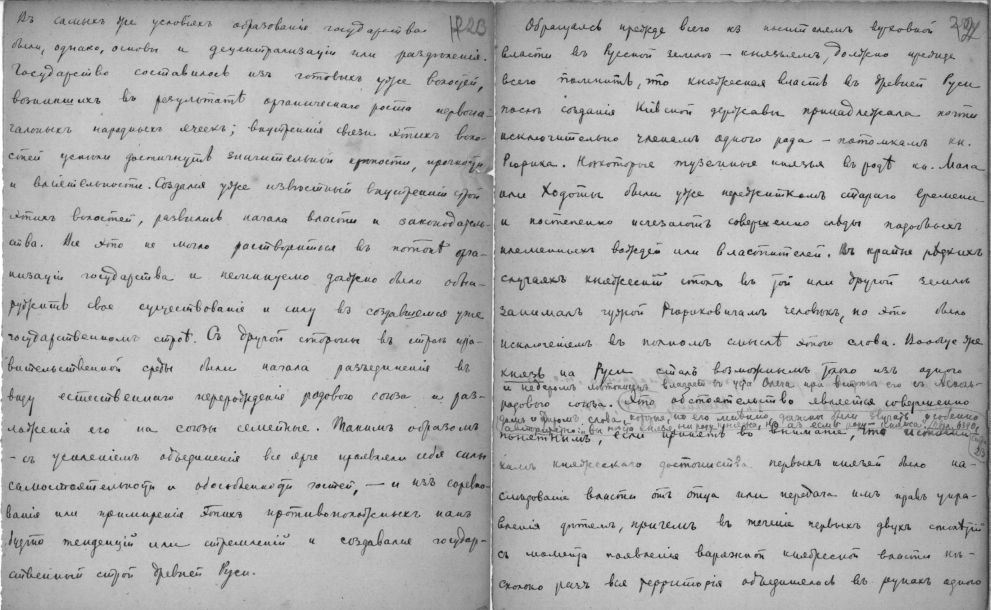 Въ самыхъ же условіяхъ образованія государства
были, однако, основы и децентрализаціи или раздѣленія.
Государство составилось изъ готовыхъ уже волостей,
возникшихъ въ результатѣ органическаго роста первона-
чальныхъ народныхъ ячеекъ; внутренія связи этихъ воло-
стей успѣли достигнуть значительной крѣпости, прочности
и вліятельности. Создался уже извѣстный внутренній строй
этихъ волостей, развились начала власти и законодатель-
ства. Все это не могло раствориться въ потокѣ орга-
низаціи государства и неминуемо должно было обна-
ружить свое существованіе и силу въ создавшемся уже
государственномъ строѣ. Съ другой стороны въ строѣ пра-
вительственной среды были начала разъединенія въ
виду естественнаго перерожденія родового союза и раз-
ложенія его на союзы семейные. Такимъ образомъ
– съ усиленіемъ объединенія все ярче проявляли себя силы
самостоятельности и обособленности частей, – и изъ соревно-
ванія или примиренія этихъ противоположныхъ какъ
будто тенденцій или стремленій и создавался государ-
ственный строй древней Руси.
Обращаясь прежде всего къ носителямъ верховной
власти въ Русской землѣ – князьямъ, должно прежде
всего помнить, что княжеская власть въ древней Руси
послѣ созданія Кіевской державы принадлежала почти
исключительно членамъ одного рода – потомкамъ кн.
Рюрика. Нѣкоторые туземные князья въ родѣ кн. Мала
или Ходоты были уже пережиткомъ стараго времени
и постепенно исчезаютъ совершенно слѣды подобныхъ
племенныхъ вождей или властителей. Въ крайне рѣдкихъ
случаяхъ княжескій столъ въ той или другой землѣ
занималъ чужой Рюриковичамъ человѣкъ, но это было
исключеніемъ въ полномъ смыслѣ этого слова. Вообще же
князь на Руси сталъ возможнымъ только изъ одного
и недаромъ лѣтописецъ влагаетъ въ уста Олега при встрѣчѣ его съ Асколь-
родового союза. Это обстоятельство является совершенно
домъ и Диромъ слова, которыя, по его мнѣнію, должны были звучать особенно
авторитетно: вы нѣста князя, ни роду княжа, но азъ есмь роду княжа
понятнымъ, если принять во вниманіе, что источни-
комъ княжескаго достоинства первыхъ князей было на-
слѣдованіе власти отъ отца или передача имъ правъ упра-
вленія дѣтямъ, причемъ въ теченіе первыхъ двухъ столѣтій
съ момента появленія варяжской княжеской власти нѣ-
сколько разъ вся территорія объединялась въ рукахъ одного